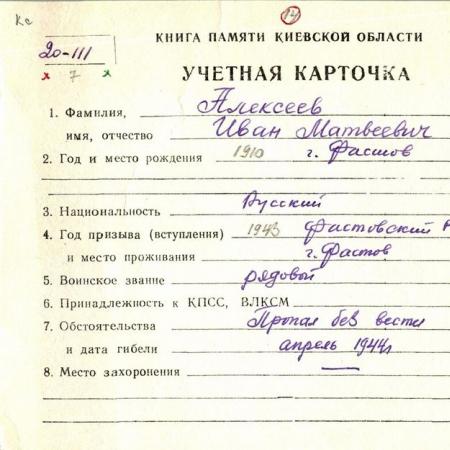 Ке
14
20-III
КНИГА ПАМЯТИ КИЕВСКОЙ ОБЛАСТИ
х 7 х
УЧЕТНАЯ КАРТОЧКА
1. Фамилия, Алексеев
имя, отчество Иван Матвеевич
2. Год и место рождения 1910 г. Фастов
3. Национальность Русский
4. Год призыва (вступления) 1943 Фастовский Р
и место проживания г. Фастов
5. Воинское звание рядовой
6. Принадлежность к КПСС, ВЛКСМ
7. Обстоятельства Пропал без вести
и дата гибели апрель 1944г
8. Место захоронения —